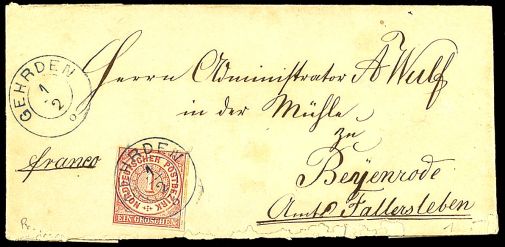 GEHRDEN
1
2
Herrn Administrator A Wulf
in der Mühle
zu
Beyenrode
Amt Fallersleben
franco
NORDDEUTSCHER POSTBEZIRK
1
EIN GROSCHEN
HRDEN
1
2